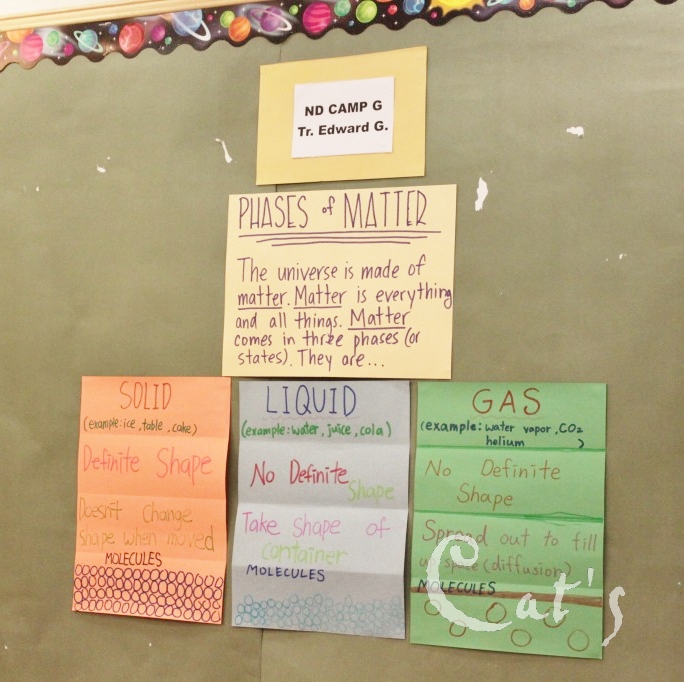 ND CAMP G
Tr. Edward G.
PHASES of MATTER
The universe is made of
matter. Matter is everything
and all things. Matter
comes in three phases (or
states). They are...
SOLID
(example: ice, table, cake)
Definite Shape
Doesn't Change
shape when moved
MOLECULES
LIQUID
(example: water, juice, cola)
No Definite
Shape
Take Shape of
Container
MOLECULES
GAS
(example: water vapor, CO2
helium )
No Definite
Shape
Spread out to fill
up space (diffusion)
MOLECULES
Cat's